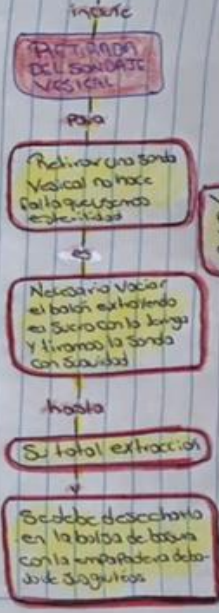 RETIRADA
DEL SONDAJE
VESICAL
para
Retirar una sonda
Vesical no hace
falta que usemos
esterilidad
es
Necesario vaciar
el balón extrayendo
el suero con la jeringa
y tiramos la sonda
con suavidad
hasta
Su total extracción
Se debe desecharla
en la bolsa de basura
con la empapadera deba-
jo de sus glúteos